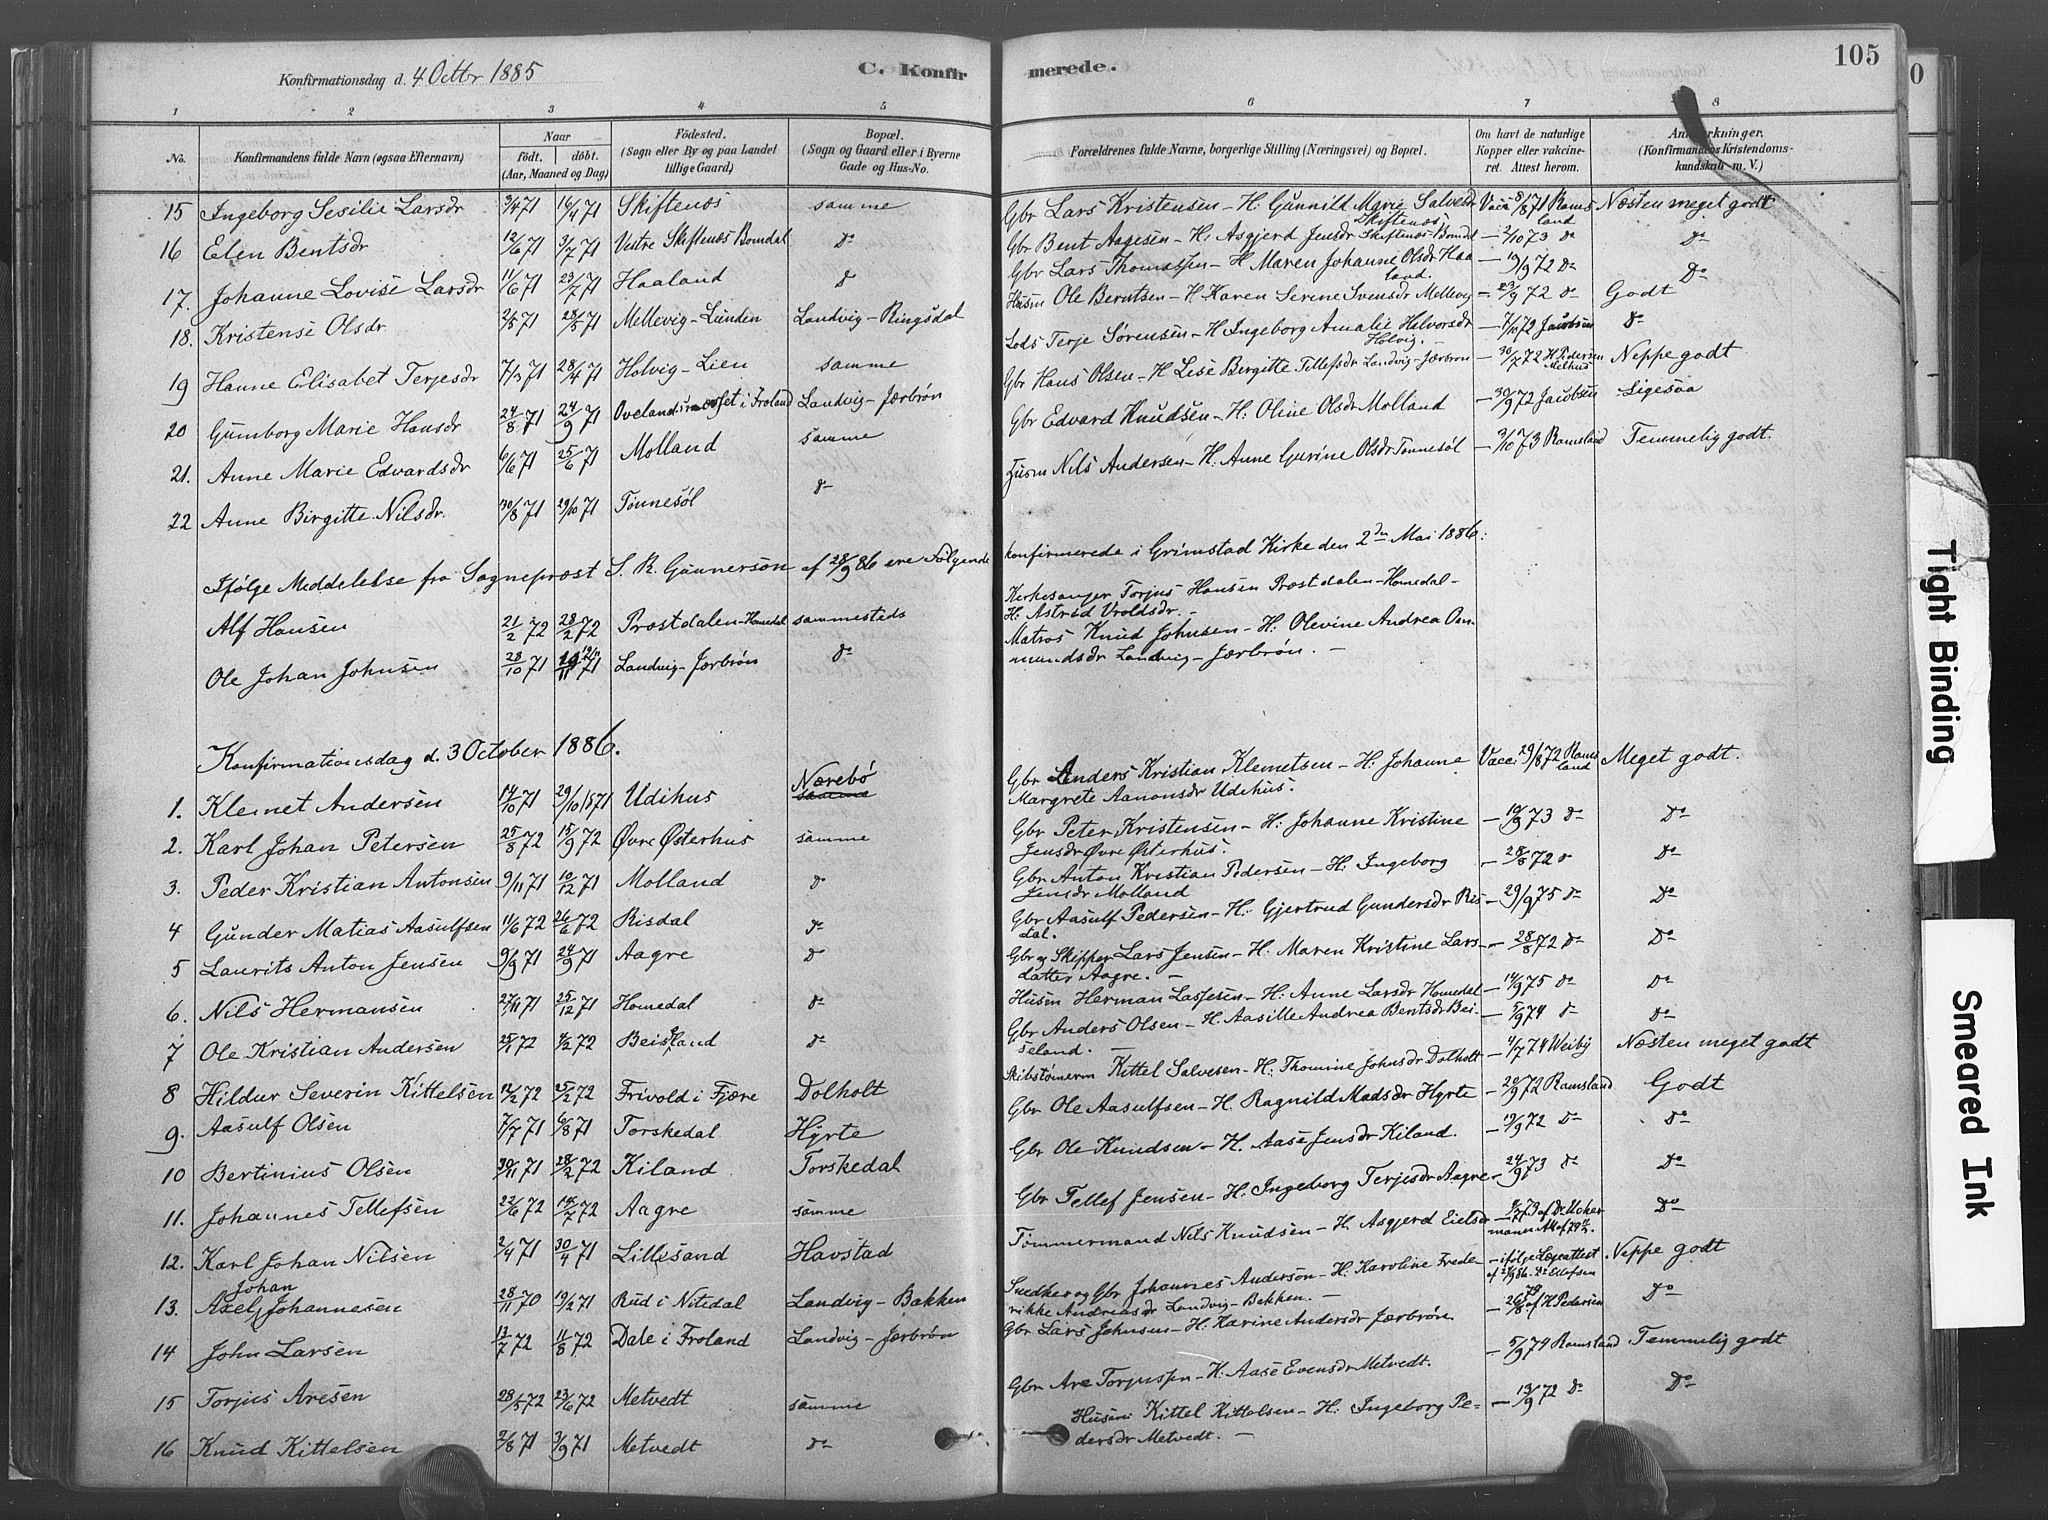 Konfirmationsdag d. 4 Octbr 1885
C. Konfirmerede.
105
1 2 3 4 5 6 7 8
No.
Konfirmandens fulde Navn (ogsaa Efternavn)
Naar
født. døbt.
(Aar, Maaned og Dag)
Fødested.
(Sogn eller By og paa Landet
tillige Gaard)
Bopæl.
(Sogn og Gaard eller i Byerne
Gade og Hus-No.
Forældrenes fulde Navne, borgerlige Stilling (Næringsvei) og Bopæl.
Om havt de naturlige
Kopper eller vakcine-
ret. Attest herom.
Anmærkninger.
(Konfirmandens Kristendoms-
kundskab m. V.)
15 Ingeborg Sesilie Larsdr 3/4 71 16/4 71 Skiftenæs samme Gbr Lars Kristensen - H. Gunnild Marie Salvesdr Skiftenæs Vacc 8/8 71 Ramsland Næsten meget godt
16 Elen Bentsdr 12/6 71 3/7 71 Vestre Skiftenæs Bomdal do Gbr Bent Aagesen - H: Asgjerd Jensdr Skiftenæs-Bomdal - 2/10 73 do do
17. Johanne Lovise Larsdr 11/6 71 23/7 71 Haaland do Gbr Lars Thomassen - H Maren Johanne Olsdr Haaland. - 19/9 72 do do
18. Kristense Olsdr 2/5 71 28/5 71 Mellevig-Lunden Landvig-Ringsdal Husm Ole Berntsen - H Karen Serine Svensdr Mellevig - 23/9 72 do Godt
19 Hanne Elisabet Terjesdr 7/3 71 28/4 71 Holvig-Lien samme Lods Terje Sørensen - H Ingeborg Amalie Halvorsdr Holvig. - 7/10 72 Jacobsen do
20 Gumborg Marie Hansdr 24/8 71 24/9 71 Ovelandsmoset i Froland Landvig-Jærbrøn Gbr Hans Olsen - H Lise Birgitte Tellefsdr Landvig-Jærbrøn - 30/7 72 H Pedersen Neppe godt
21. Anne Marie Edvardsdr 6/6 71 25/6 71 Molland samme Gbr Edvard Knudsen - H: Oline Olsdr Molland - 30/9 72 Jacobsen Ligesaa
22 Anne Birgitte Nilsdr. 30/8 71 29/10 71 Tønnesøl do Husm Nils Andersen - H: Anne Gurine Olsdr Tønnesøl - 3/10 73 Ramsland Temmelig godt.
Ifølge Meddelelse fra Sogneprost S. R. Gunnerson af 28/9 86 ere Følgende konfirmerede i Grimstad Kirke den 2den Mai 1886:
Alf Hansen 21/2 72 28/2 72 Prostdalen-Homedal sammesteds Kirkesanger Torjus Hansen Prostdalen-Homedal - H: Astrid Vroldsdr. -
Ole Johan Johnsen 28/10 71 19/11 71 Landvig-Jærbrøn do Matros Knud Johnsen - H: Olevine Andrea Osmundsdr Landvig-Jærbrøn. -
Konfirmationsdag d. 3 October 1886.
1. Klemet Andersen 14/10 71 29/10 1871 Udihus Nærebø samme Gbr Anders Kristian Klemetsen - H: Johanne Margrete Aanonsdr Udihus. Vacc 29/8 72 Ramsland Meget godt.
2. Karl Johan Petersen 25/8 72 15/9 72 Øvre Østerhus samme Gbr Peter Kristensen - H: Johanne Kristine Jensdr Øvre Østerhus. - 19/9 73 do do
3. Peder Kristian Antonsen 9/11 71 10/12 71 Molland do Gbr Anton Kristian Pedersen - H: Ingeborg Jensdr Molland - 28/8 72 do do
4 Gunder Matias Aasulfsen 11/6 72 26/6 72 Risdal do Gbr Aasulf Pedersen - H: Gjertrud Gundersdr Risdal. - 29/9 75 do do
5 Laurits Anton Jensen 9/9 71 24/9 71 Aagre do Gbr og Skipper Lars Jensen - H: Maren Kristine Larsdatter Aagre. - - 28/8 72 do do
6. Nils Hermansen 27/11 71 25/12 71 Homedal do Husm Herman Lassesen - H: Anne Larsdr Homedal - 14/9 75 do do
7 Ole Kristian Andersen 25/1 72 4/2 72 Beiseland do Gbr Anders Olsen - H. Aasille Andrea Bentsdr Beiseland. - 5/9 74 do do
8 Hildur Severin Kittelsen 12/2 72 25/2 72 Frivold i Fjære Dolholt Skibstømrm Kittel Salvesen - H: Thomine Johnsdr Dolholt - 4/7 74 Weiby Næsten meget godt
9. Aasulf Olsen 7/7 71 6/8 71 Torskedal Hyrte Gbr Ole Aasulfsen - H. Ragnild Madsdr Hyrte - 20/9 72 Ramsland Godt
10 Bertinius Olsen 30/11 71 28/2 72 Kiland Torskedal Gbr Ole Knudsen - H. Aase Jensdr Kiland. - 19/9 72 do do
11. Johannes Tellefsen 22/6 72 14/7 72 Aagre samme Gbr Tellef Jensen - H: Ingeborg Terjesdr Aagre - 24/9 73 do do
12. Karl Johan Nilsen 2/4 71 30/4 71 Lillesand Havstad Tømmermand Nils Knudsen - H. Asgjerd Eielsdr do
13. Axel Johan Johannesen 28/11 70 19/2 71 Rud i Nitedal Landvig-Bakken Snedker og Gbr Johannes Anderson - H: Karoline Frederikke Andreasdr Landvig-Bakken. - - ifølge Lægeattest Neppe godt
14 John Larsen 13/7 72 11/8 72 Dale i Froland Landvig-Jærbrøn Gbr Lars Johnsen - H: Karine Andersdr Jærbrøn. af H Pedersen do
15 Torjus Aresen 28/5 72 23/6 72 Metvedt samme Gbr Are Torjussen - H. Aase Evensdr Metvedt. - 5/9 74 Ramsland Temmelig godt
16 Knud Kittelsen 2/8 71 3/9 71 Metvedt do Husm Kittel Kittelsen - H: Ingeborg Pedersdr Metvedt. - - 13/9 72 do do
Tight Binding
Smeared Ink